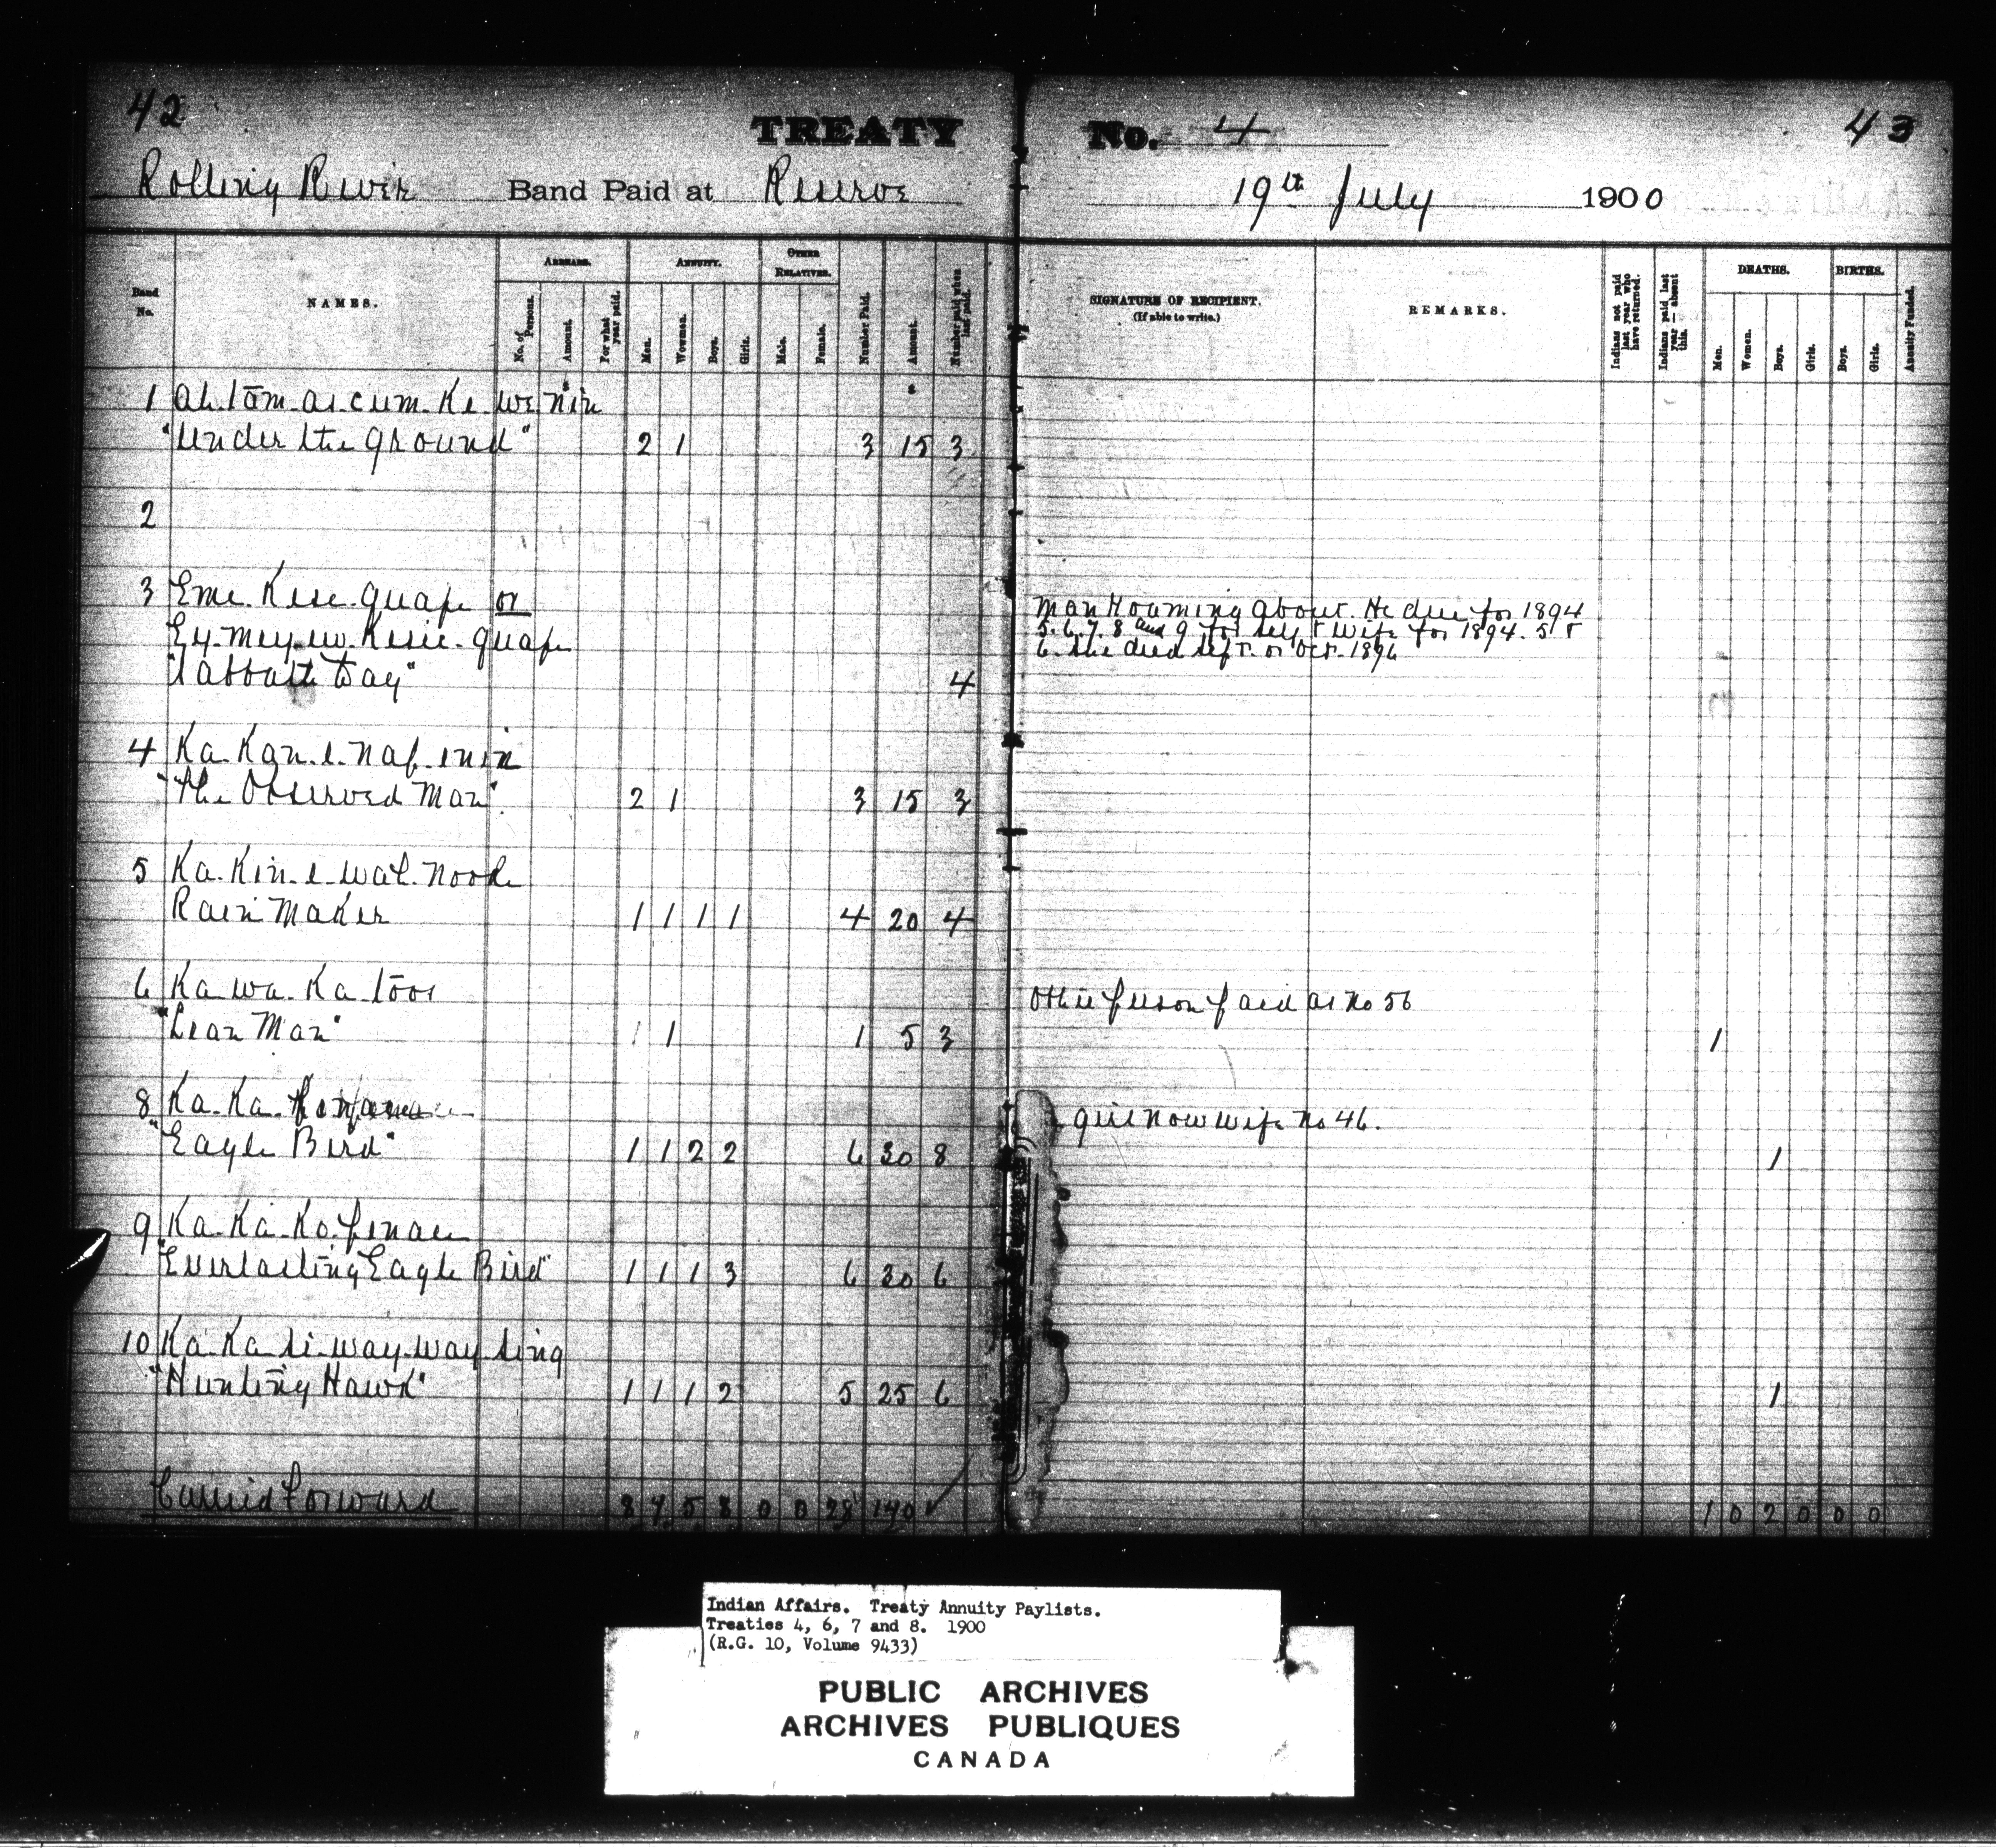 42
TREATY No. 4
43
Rolling River Band Paid at Reserve 19th July 1900
Band No.
NAMES.
ARREARS.
No. of Persons.
Amount.
For what year paid.
ANNUITY.
Men.
Women.
Boys.
Girls.
OTHER RELATIVES.
Male.
Female.
Number Paid.
Amount.
Number paid when last paid.
SIGNATURE OF RECIPIENT.
(If able to write.)
REMARKS.
Indians not paid last year who have returned.
Indians paid last year — absent this.
DEATHS.
Men.
Women.
Boys.
Girls.
BIRTHS.
Boys.
Girls.
Annuity Funded.
1 Ah.tōm.as.cum.Ke.we.nin
"Under the Ground" 2 1 3 15 3
2
3 Eme.Kese.quape or
Ey.mey.w.Kesie.quape
"Sabbath Day" 4
Man Roaming about. He due for 1894
5.6.7.8 and 9 for self & wife for 1894.5 &
6. She died Sept. or Oct. 1896
4 Ka.Kan.e.nap.inin
"The Observed Man" 2 1 3 15 3
5 Ka.Kin.e.wah.noode
Rain Maker 1 1 1 1 4 20 4
6 Ka.wa.Ka.toos
"Lean Man" 1 1 1 5 3 1
Other person paid as No 56
8 Ka.Ka.
"Eagle Bird" 1 1 2 2 6 30 8 1
1 girl now wife No 46.
9 Ka.Ka.Ko.penace
"Everlasting Eagle Bird" 1 1 1 3 6 30 6
10 Ka.Ka.si.way.way.sing
"Hunting Hawk" 1 1 1 2 5 25 6 1
Carried Forward 8 7 5 8 0 0 28 140 1 0 2 0 0 0
Indian Affairs. Treaty Annuity Paylists.
Treaties 4, 6, 7 and 8. 1900
(R.G. 10, Volume 9433)
PUBLIC ARCHIVES
ARCHIVES PUBLIQUES
CANADA